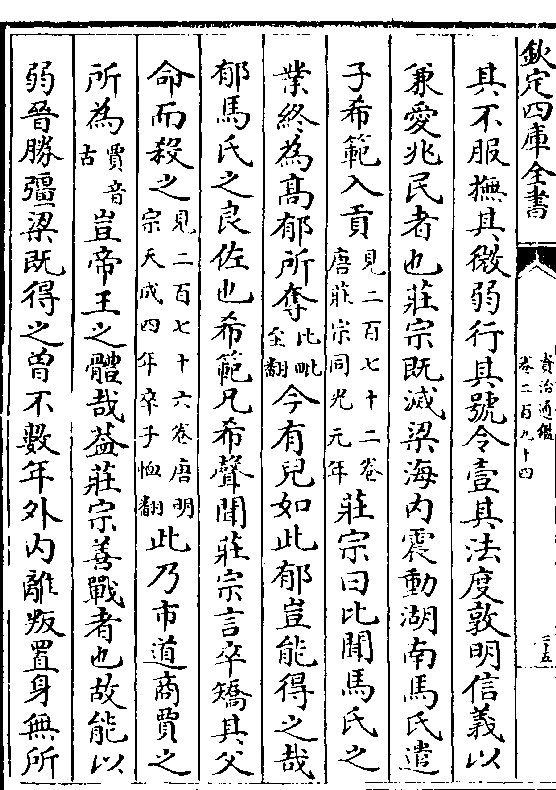 欽定四庫全書
資治通鑑
卷二百九十四
三十五
其不服撫其微弱行其號令壹其法度敦明信義以
兼愛兆民者也莊宗既滅梁海内震動湖南馬氏遣
子希範入貢見二百七十二卷唐莊宗同光元年莊宗曰比聞馬氏之
業終為髙郁所奪比毗至翻今有兒如此郁豈能得之哉
郁馬氏之良佐也希範兄希聲聞莊宗言卒矯其父
命而殺之見二百七十六卷唐明宗天成四年卒子恤翻此乃市道商賈之
所為賈音古豈帝王之體哉葢莊宗善戰者也故能以
弱晉勝彊梁既得之曽不數年外内離叛置身無所